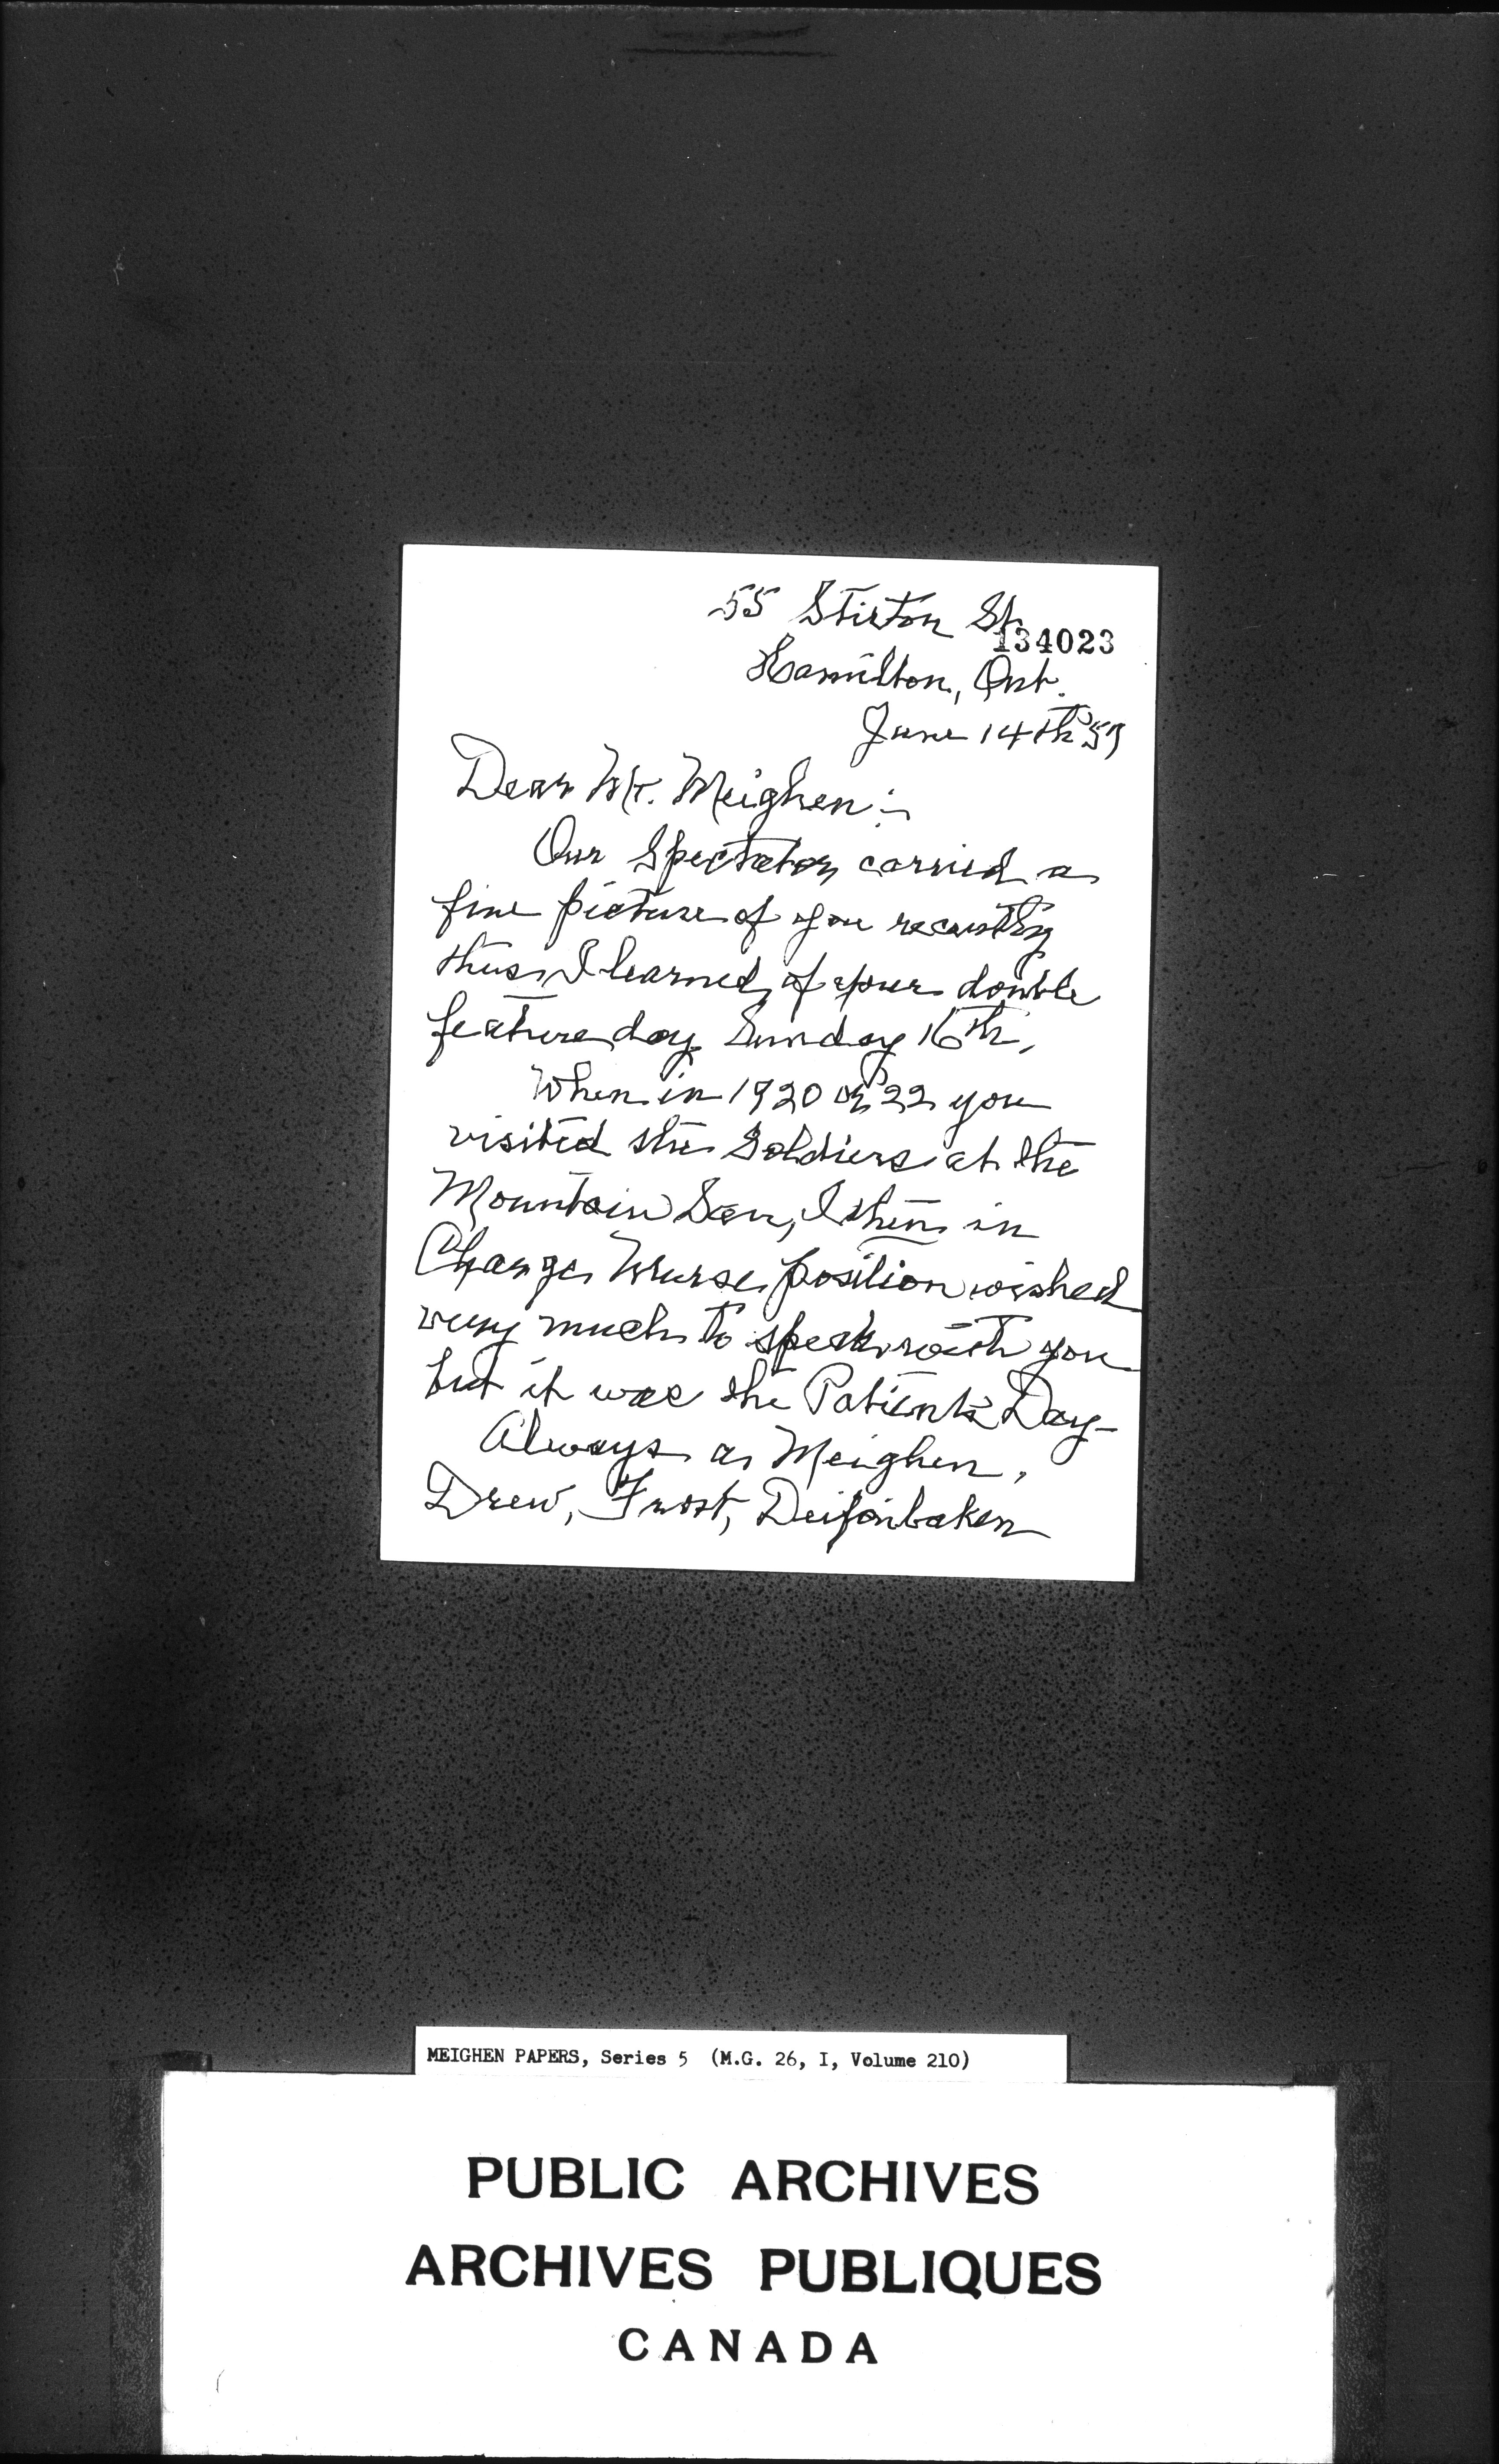 55 Stirton St.
134023
Hamilton, Ont.
June 14th
Dear Mr. Meighen :-
Our Spectator carried a
fine picture of you recently
thus I learned of your double
feature day Sunday 16th,
When in 1920 or 22 you
visited the Soldiers at the
Mountain San, I then in
Charge Nurse position wished
very much to speak with you
but it was the Patients Day-
Always a Meighen,
Drew, Frost, Deifenbaken
MEIGHEN PAPERS, Series 5 (M.G. 26, I, Volume 210)
PUBLIC ARCHIVES
ARCHIVES PUBLIQUES
CANADA